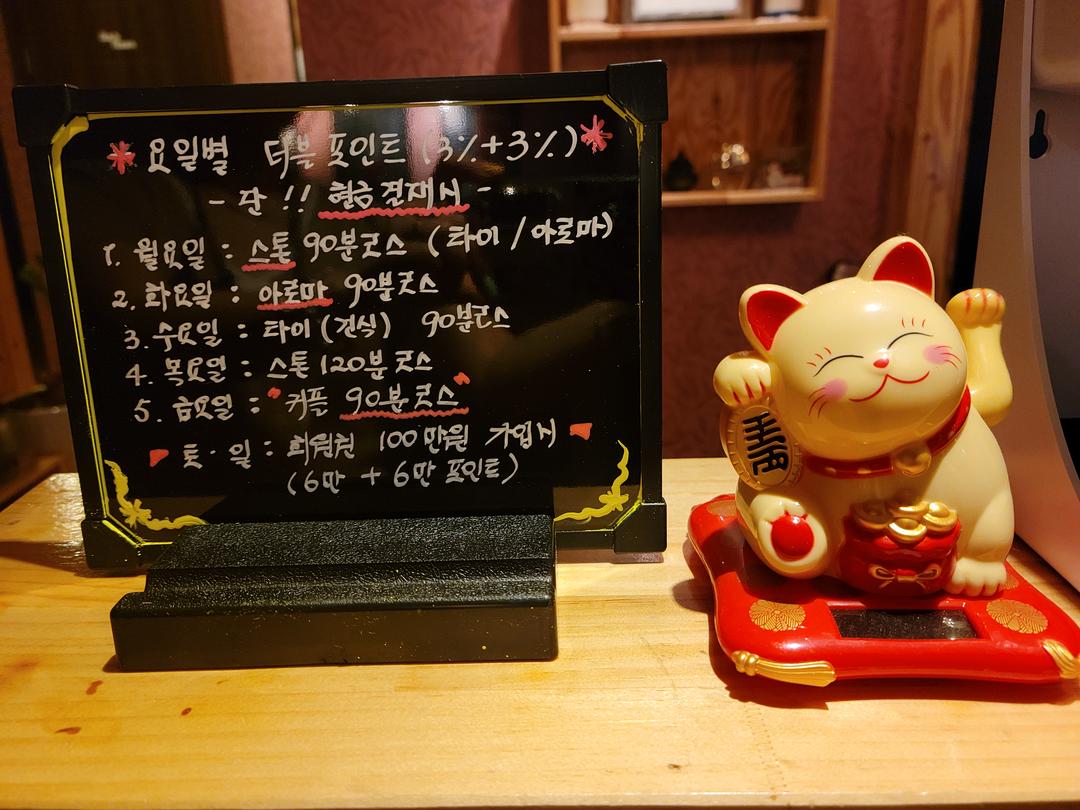 요일별 더블 포인트 (3%+3%)
- 단 !! 현금 결재시 -
1. 월요일 : 스톤 90분코스 (타이 / 아로마)
2. 화요일 : 아로마 90분코스
3. 수요일 : 타이 (건식) 90분코스
4. 목요일 : 스톤 120분 코스
5. 금요일 : "커플 90분코스"
토·일 : 회원권 100만원 가입시
(6만 + 6만 포인트)